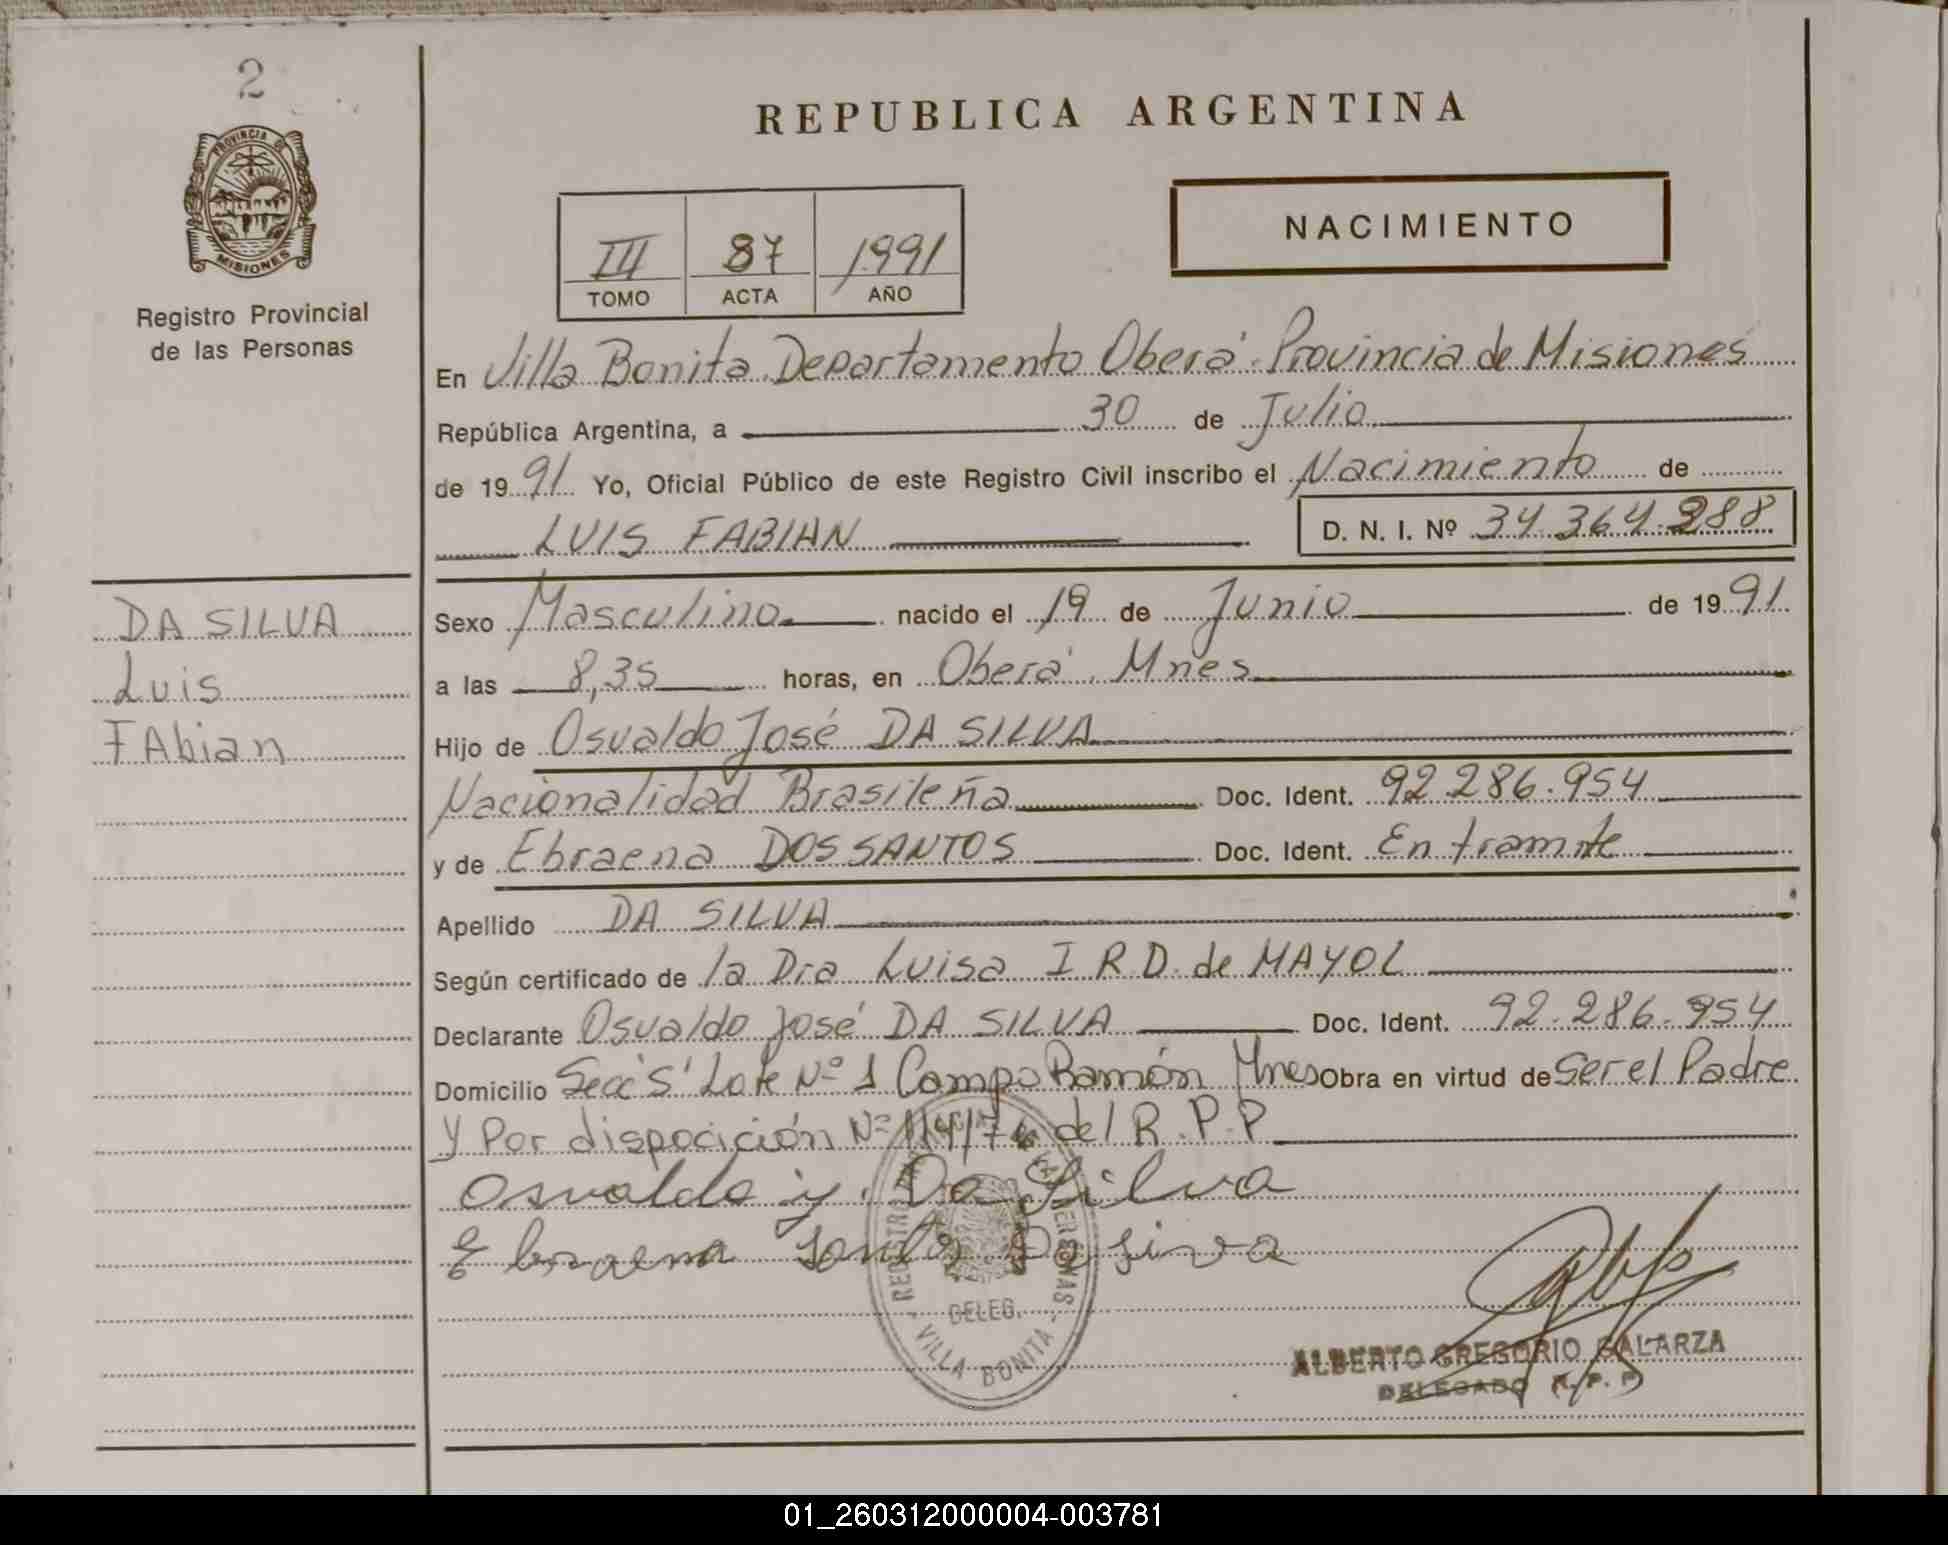 2
PROVINCIA DE
MISIONES
Registro Provincial
de las Personas
REPUBLICA ARGENTINA
III 87 1991
TOMO ACTA AÑO
NACIMIENTO
En Villa Bonita Departamento Oberá Provincia de Misiones
República Argentina, a 30 de Julio
de 1991 Yo, Oficial Público de este Registro Civil inscribo el Nacimiento de
LUIS FABIAN D. N. I. Nº 34.364.288
DA SILVA
Luis
FAbian
Sexo Masculino nacido el 19 de Junio de 1991
a las 8,35 horas, en Oberá, Mnes
Hijo de Osvaldo José DA SILVA
Nacionalidad Brasileña Doc. Ident. 92.286.954
y de Ebraena DOS SANTOS Doc. Ident. En tramite
Apellido DA SILVA
Según certificado de la Dra Luisa I R.D. de MAYOL
Declarante Osvaldo José DA SILVA Doc. Ident. 92.286.954
Domicilio Secc 5' Lote Nº 1 Campo Ramón Mnes Obra en virtud de ser el Padre
y Por disposición Nº 114/74 del R.P.P
Osvaldo y. Da Silva
Ebraena Santos Da siva
DELEG.
VILLA BONITA
ALBERTO GREGORIO GALARZA
DELEGADO R. P. P
01_260312000004-003781